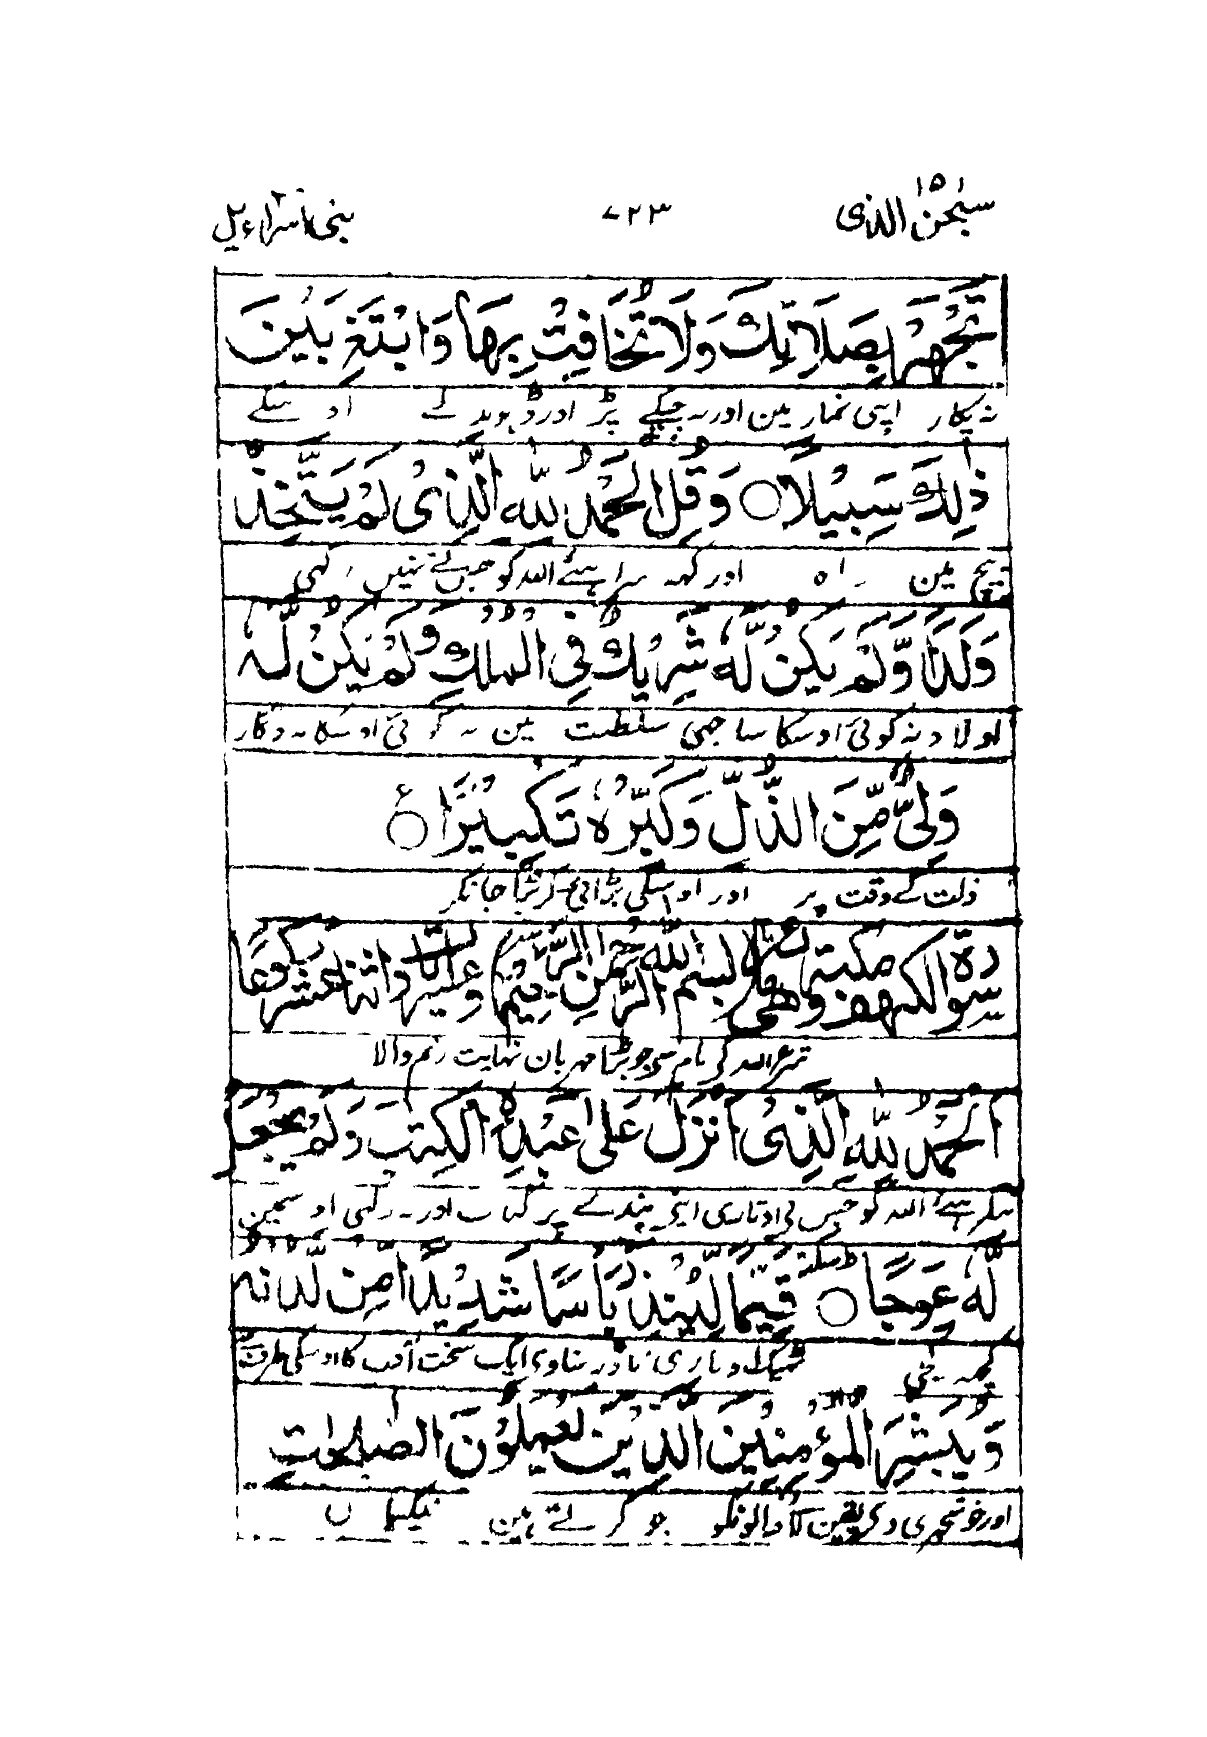 سبحن الذی ١٥ ٧٢٣ بنی اسراءیل
تَجْهَرْ بِصَلَاتِكَ وَلَا تُخَافِتْ بِهَا وَابْتَغِ بَيْنَ
نہ پکار اپنی نماز مین اور نہ چپکے پڑ اور ڈہونڈ لے اوسکے
ذٰلِكَ سَبِيْلًا ○ وَقُلِ الْحَمْدُ لِلّٰهِ الَّذِىْ لَمْ يَتَّخِذْ
بیچ مین راہ اور کہہ سراہئے اللہ کو جس نے نہیں رکہی
وَلَدًا وَّلَمْ يَكُنْ لَّهٗ شَرِيْكٌ فِى الْمُلْكِ وَلَمْ يَكُنْ لَّهٗ
اولاد نہ کوئی اوسکا ساجہی سلطنت مین نہ کوئی اوسکا مددگار
وَلِىٌّ مِّنَ الذُّلِّ وَكَبِّرْهُ تَكْبِيْرًا ○ ع
ذلت کے وقت پر اور اوسکی بڑائی کر بڑا جانکر
سورة الكهف مكية وهى بسم الله الرحمن الرحيم واثنا عشر ركوعا
شروع اللہ کے نام سے جو بڑا مہربان نہایت رحم والا
اَلْحَمْدُ لِلّٰهِ الَّذِىْ اَنْزَلَ عَلٰى عَبْدِهِ الْكِتٰبَ وَلَمْ يَجْعَلْ
سراہئے اللہ کو جس نے اوتاری اپنے بندے پر کتاب اور نہ رکہی اوسمین
لَّهٗ عِوَجًا ○ سكتة قَيِّمًا لِّيُنْذِرَ بَاْسًا شَدِيْدًا مِّنْ لَّدُنْهُ
کچہہ کجی ٹہیک اوتاری تا ڈر سناوی ایک سخت آفت کا اوسکی طرف سے
وَيُبَشِّرَ الْمُؤْمِنِيْنَ الَّذِيْنَ يَعْمَلُوْنَ الصّٰلِحٰتِ
اور خوشخبری دے یقین لانے والونکو جو کرتے ہین نیکیاں